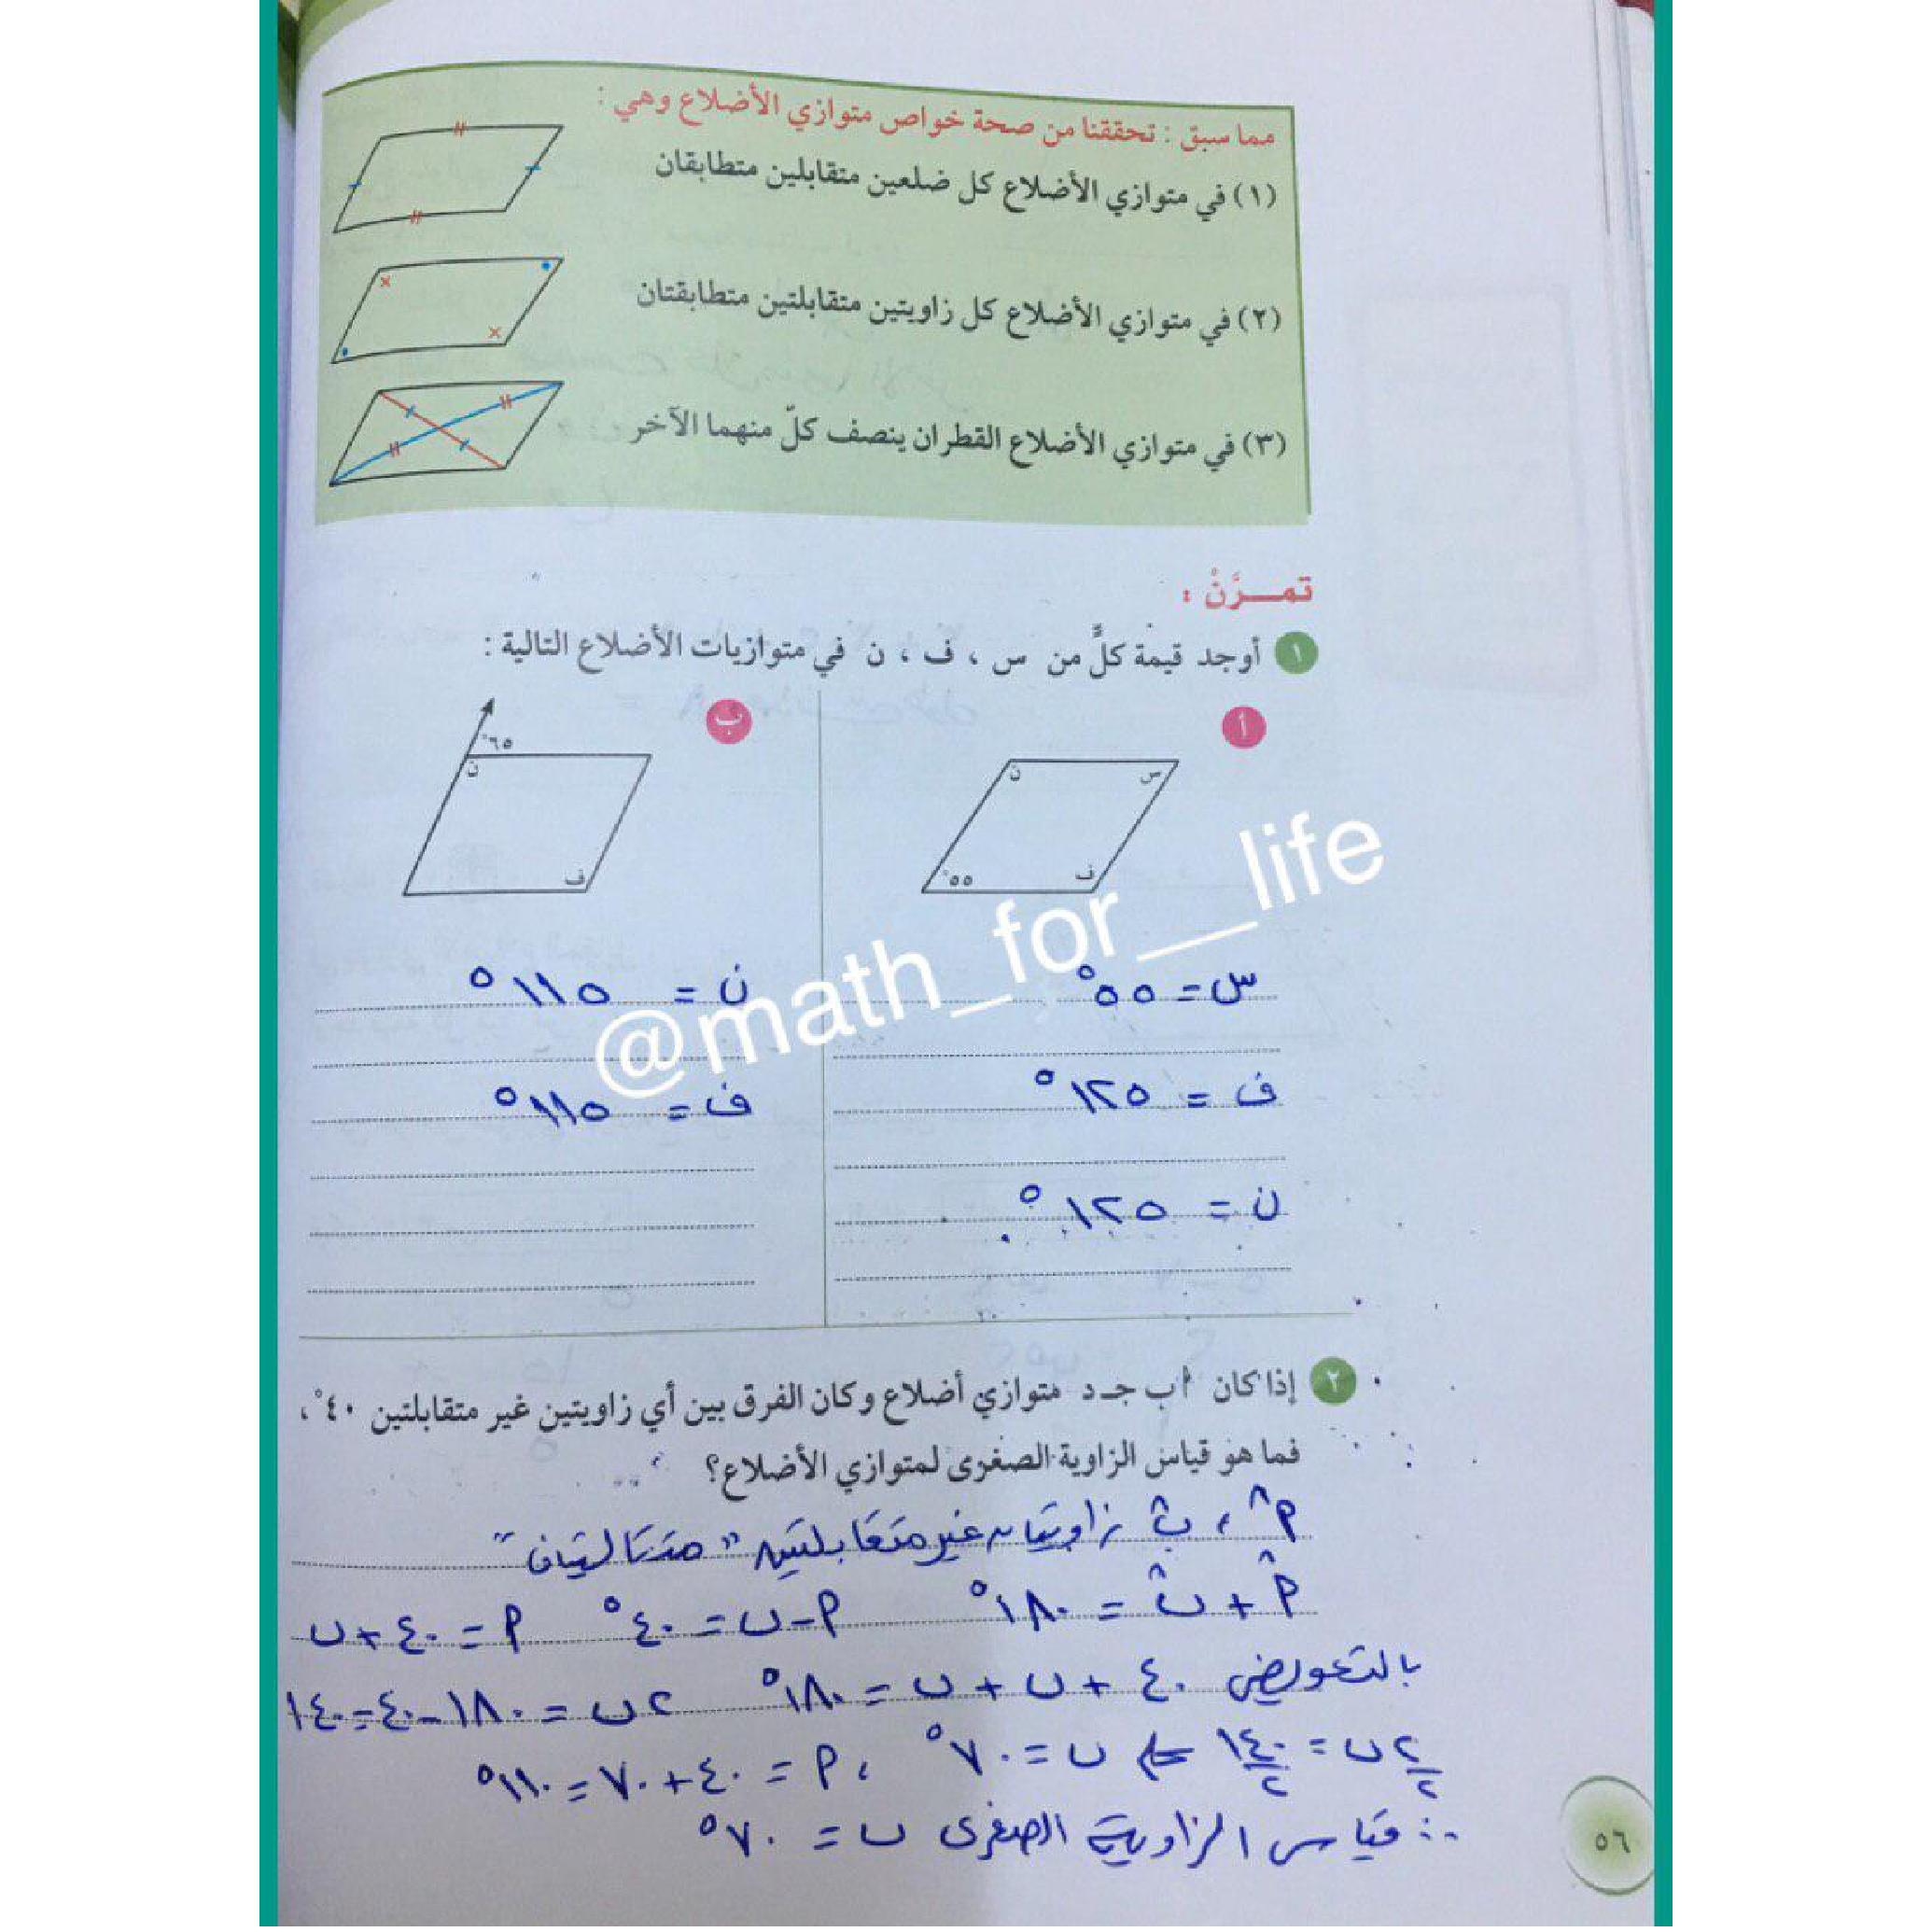 مما سبق : تحققنا من صحة خواص متوازي الأضلاع وهي :
(١) في متوازي الأضلاع كل ضلعين متقابلين متطابقان
(٢) في متوازي الأضلاع كل زاويتين متقابلتين متطابقتان
(٣) في متوازي الأضلاع القطران ينصف كلّ منهما الآخر
تمـــرَّنْ :
١ أوجد قيمة كلٍّ من س ، ف ، ن في متوازيات الأضلاع التالية :
أ
ن س
٥٥° ف
س = ٥٥°
ف = ١٢٥°
ن = ١٢٥°
ب
٦٥°
ن
ف
ن = ١١٥°
ف = ١١٥°
@math_for__life
٢ إذا كان أ ب جـ د متوازي أضلاع وكان الفرق بين أي زاويتين غير متقابلتين ٤٠° ،
فما هو قياس الزاوية الصغرى لمتوازي الأضلاع؟
أ ، ب زاويتان غير متقابلتين " متتاليتان "
أ + ب = ١٨٠° أ - ب = ٤٠° أ = ٤٠ + ب
بالتعويض ٤٠ + ب + ب = ١٨٠° ٢ب = ١٨٠ - ٤٠ = ١٤٠
٢ب/٢ = ١٤٠/٢ ⇐ ب = ٧٠° ، أ = ٤٠ + ٧٠ = ١١٠°
∴ قياس الزاوية الصغرى ب = ٧٠°
٥٦